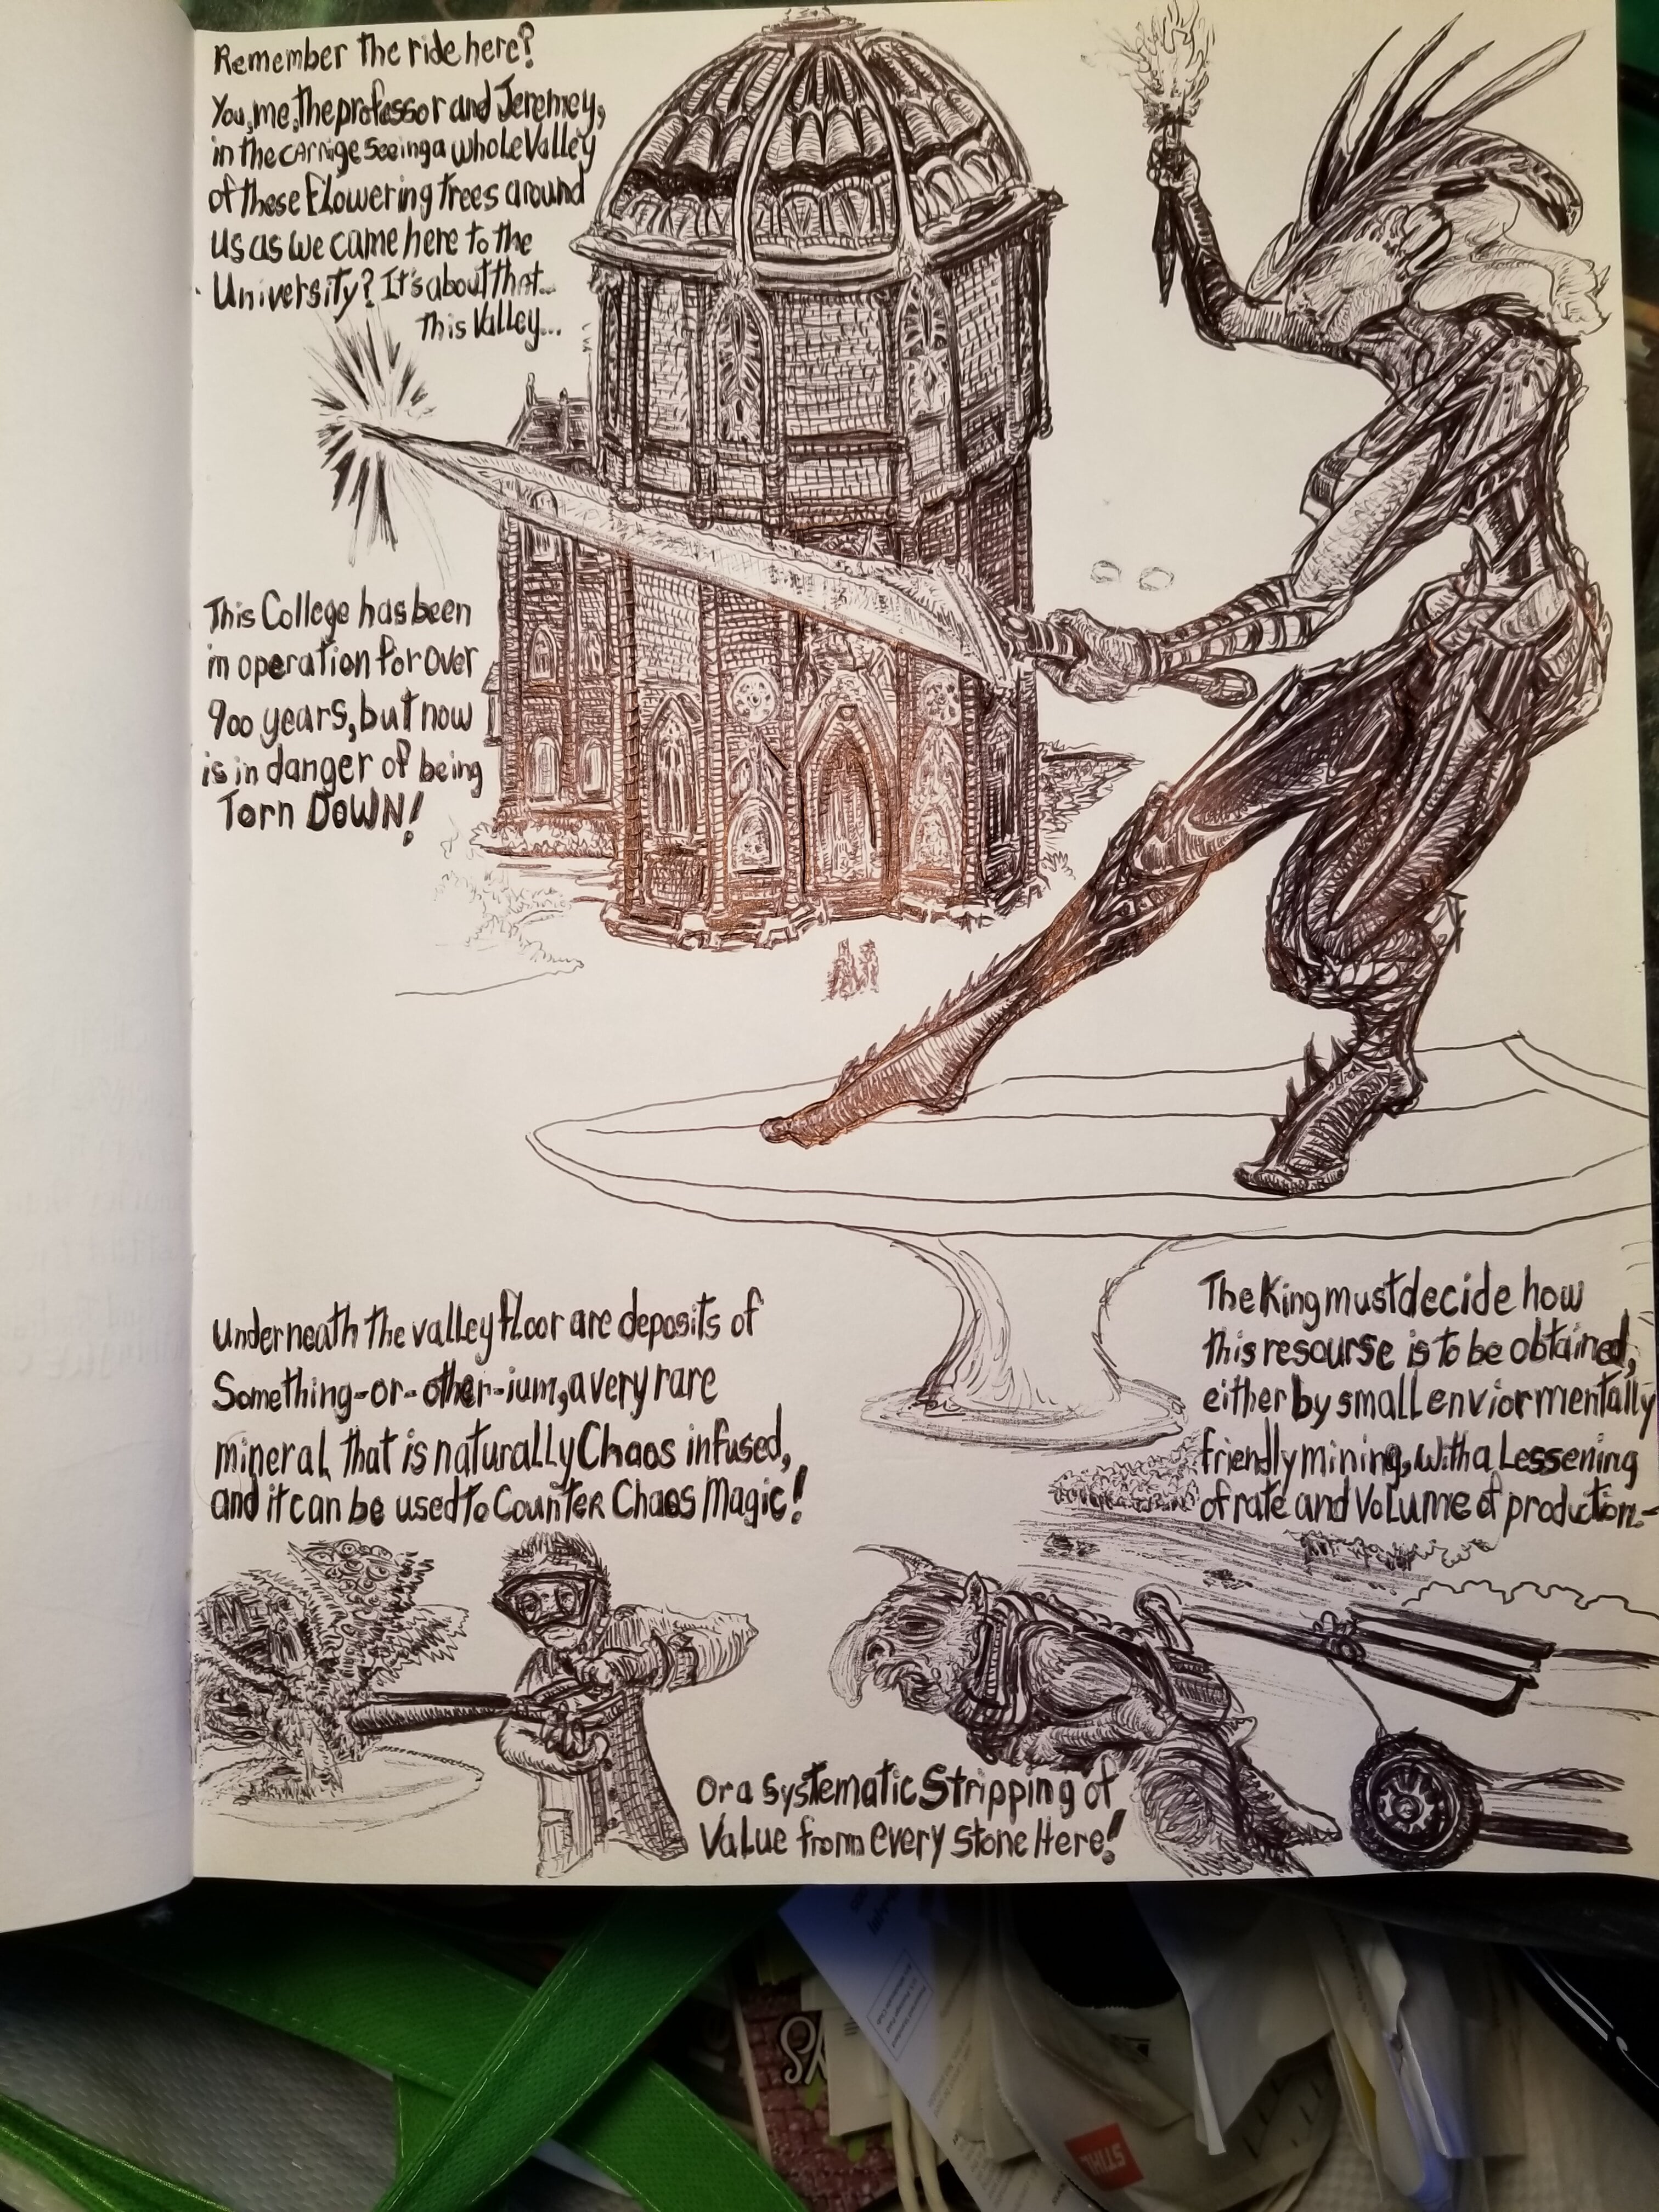 Remember the ride here?
You, me, the professor and Jeremey,
in the carrige seeing a whole Valley
of these flowering trees around
us as we came here to the
University? It's about that...
This Valley...
This College has been
in operation for over
900 years, but now
is in danger of being
Torn DOWN!
Underneath the valley floor are deposits of
Something-or-other-ium, a very rare
mineral that is naturally Chaos infused,
and it can be used to Counter Chaos Magic!
The King must decide how
this resourse is to be obtained,
either by small enviormentally
friendly mining, with a Lessening
of rate and Volume of production-
Or a Systematic Stripping of
Value from every stone Here!
STIHL